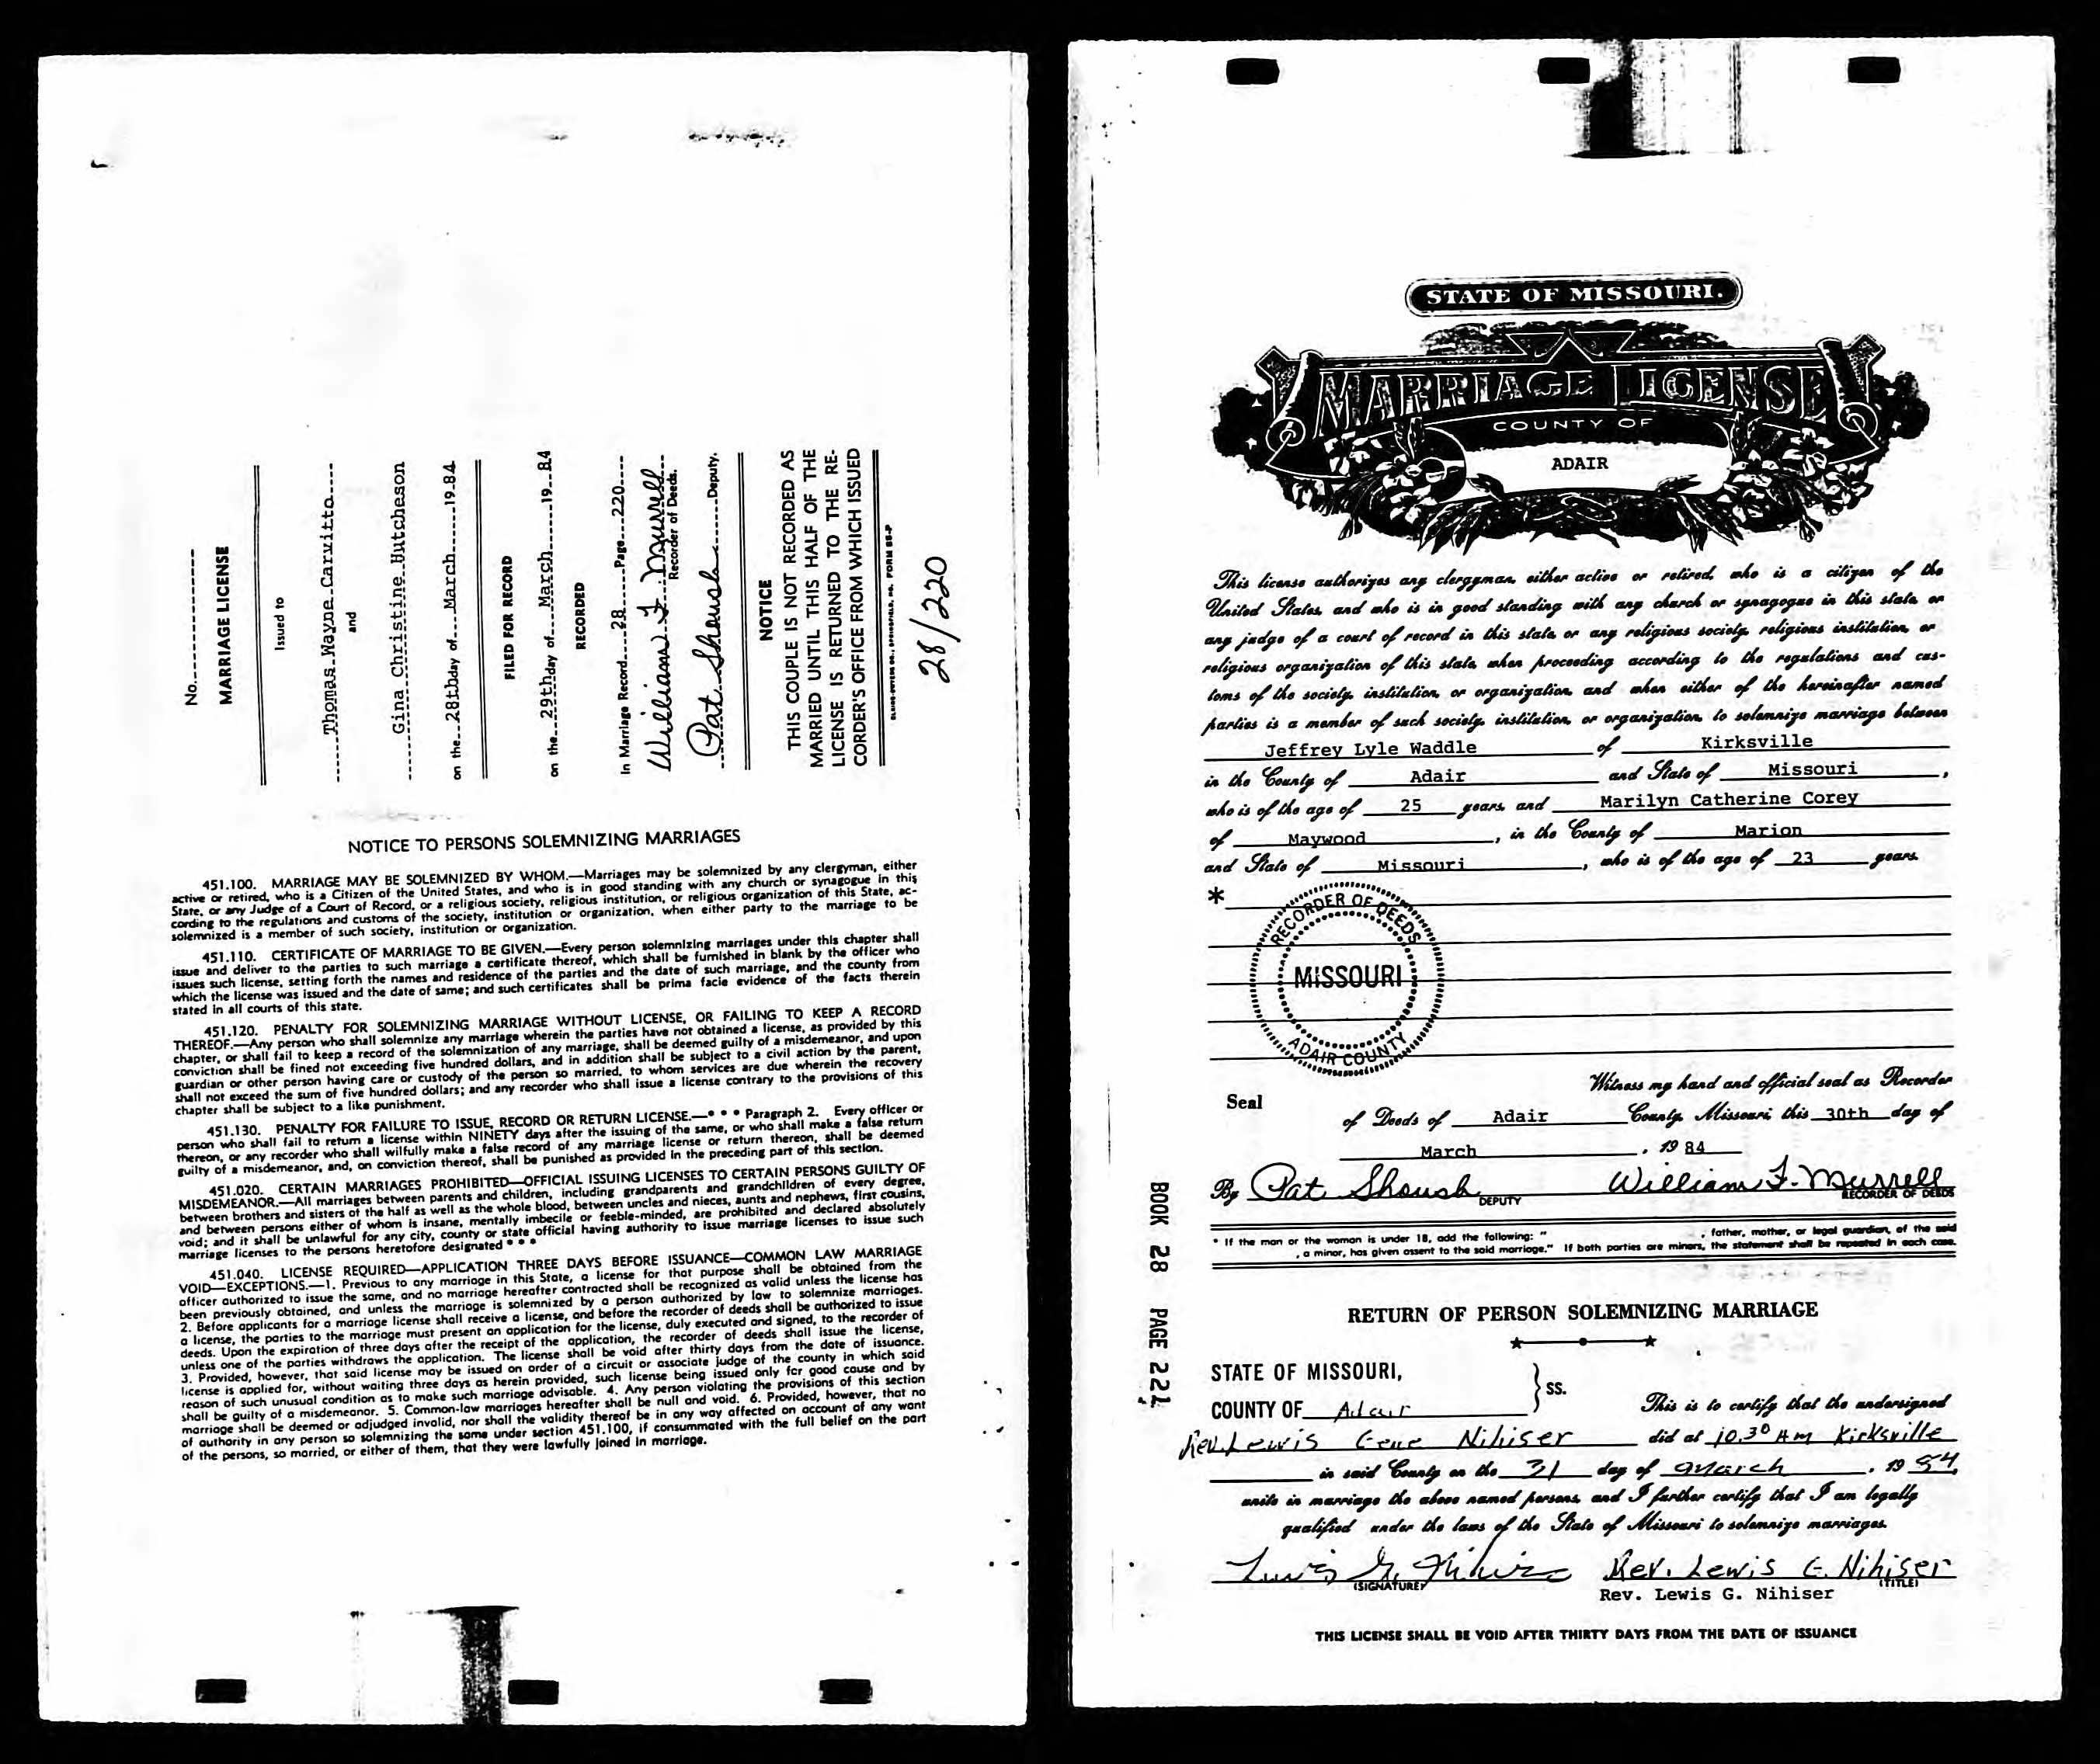 No.
MARRIAGE LICENSE
Issued to
Thomas Wayne Carvitto
and
Gina Christine Hutcheson
on the 28th day of March 19 84
FILED FOR RECORD
on the 29th day of March 19 84
RECORDED
In Marriage Record 28 Page 220
William F. Murrell
Recorder of Deeds.
Pat Shoush Deputy.
NOTICE
THIS COUPLE IS NOT RECORDED AS
MARRIED UNTIL THIS HALF OF THE
LICENSE IS RETURNED TO THE RE-
CORDER'S OFFICE FROM WHICH ISSUED
28/220
NOTICE TO PERSONS SOLEMNIZING MARRIAGES
451.100. MARRIAGE MAY BE SOLEMNIZED BY WHOM.—Marriages may be solemnized by any clergyman, either
active or retired, who is a Citizen of the United States, and who is in good standing with any church or synagogue in this
State, or any Judge of a Court of Record, or a religious society, religious institution, or religious organization of this State, ac-
cording to the regulations and customs of the society, institution or organization, when either party to the marriage to be
solemnized is a member of such society, institution or organization.
451.110. CERTIFICATE OF MARRIAGE TO BE GIVEN.—Every person solemnizing marriages under this chapter shall
issue and deliver to the parties to such marriage a certificate thereof, which shall be furnished in blank by the officer who
issues such license, setting forth the names and residence of the parties and the date of such marriage, and the county from
which the license was issued and the date of same; and such certificates shall be prima facie evidence of the facts therein
stated in all courts of this state.
451.120. PENALTY FOR SOLEMNIZING MARRIAGE WITHOUT LICENSE, OR FAILING TO KEEP A RECORD
THEREOF.—Any person who shall solemnize any marriage wherein the parties have not obtained a license, as provided by this
chapter, or shall fail to keep a record of the solemnization of any marriage, shall be deemed guilty of a misdemeanor, and upon
conviction shall be fined not exceeding five hundred dollars, and in addition shall be subject to a civil action by the parent,
guardian or other person having care or custody of the person so married, to whom services are due wherein the recovery
shall not exceed the sum of five hundred dollars; and any recorder who shall issue a license contrary to the provisions of this
chapter shall be subject to a like punishment.
451.130. PENALTY FOR FAILURE TO ISSUE, RECORD OR RETURN LICENSE.—* * * Paragraph 2. Every officer or
person who shall fail to return a license within NINETY days after the issuing of the same, or who shall make a false return
thereon, or any recorder who shall wilfully make a false record of any marriage license or return thereon, shall be deemed
guilty of a misdemeanor, and, on conviction thereof, shall be punished as provided in the preceding part of this section.
451.020. CERTAIN MARRIAGES PROHIBITED—OFFICIAL ISSUING LICENSES TO CERTAIN PERSONS GUILTY OF
MISDEMEANOR.—All marriages between parents and children, including grandparents and grandchildren of every degree,
between brothers and sisters of the half as well as the whole blood, between uncles and nieces, aunts and nephews, first cousins,
and between persons either of whom is insane, mentally imbecile or feeble-minded, are prohibited and declared absolutely
void; and it shall be unlawful for any city, county or state official having authority to issue marriage licenses to issue such
marriage licenses to the persons heretofore designated * * *
451.040. LICENSE REQUIRED—APPLICATION THREE DAYS BEFORE ISSUANCE—COMMON LAW MARRIAGE
VOID—EXCEPTIONS.—1. Previous to any marriage in this State, a license for that purpose shall be obtained from the
officer authorized to issue the same, and no marriage hereafter contracted shall be recognized as valid unless the license has
been previously obtained, and unless the marriage is solemnized by a person authorized by law to solemnize marriages.
2. Before applicants for a marriage license shall receive a license, and before the recorder of deeds shall be authorized to issue
a license, the parties to the marriage must present an application for the license, duly executed and signed, to the recorder of
deeds. Upon the expiration of three days after the receipt of the application, the recorder of deeds shall issue the license,
unless one of the parties withdraws the application. The license shall be void after thirty days from the date of issuance.
3. Provided, however, that said license may be issued on order of a circuit or associate judge of the county in which said
license is applied for, without waiting three days as herein provided, such license being issued only for good cause and by
reason of such unusual condition as to make such marriage advisable. 4. Any person violating the provisions of this section
shall be guilty of a misdemeanor. 5. Common-law marriages hereafter shall be null and void. 6. Provided, however, that no
marriage shall be deemed or adjudged invalid, nor shall the validity thereof be in any way affected on account of any want
of authority in any person so solemnizing the same under section 451.100, if consummated with the full belief on the part
of the persons, so married, or either of them, that they were lawfully joined in marriage.
STATE OF MISSOURI.
MARRIAGE LICENSE
COUNTY OF
ADAIR
This license authorizes any clergyman, either active or retired, who is a citizen of the
United States, and who is in good standing with any church or synagogue in this state, or
any judge of a court of record in this state, or any religious society, religious institution, or
religious organization of this state, when proceeding according to the regulations and cus-
toms of the society, institution, or organization, and when either of the hereinafter named
parties is a member of such society, institution, or organization, to solemnize marriage between
Jeffrey Lyle Waddle of Kirksville
in the County of Adair and State of Missouri ,
who is of the age of 25 years, and Marilyn Catherine Corey
of Maywood , in the County of Marion
and State of Missouri , who is of the age of 23 years.
*
RECORDER OF DEEDS
MISSOURI
ADAIR COUNTY
Witness my hand and official seal as Recorder
Seal
of Deeds of Adair County, Missouri, this 30th day of
March , 19 84
By Pat Shoush DEPUTY William F. Murrell RECORDER OF DEEDS
* If the man or the woman is under 18, add the following: " , father, mother, or legal guardian, of the said
, a minor, has given assent to the said marriage." If both parties are minors, the statement shall be repeated in each case.
BOOK 28 PAGE 221
RETURN OF PERSON SOLEMNIZING MARRIAGE
STATE OF MISSOURI,
COUNTY OF Adair } SS.
This is to certify that the undersigned
Rev. Lewis Gene Nihiser did at 10.30 AM Kirksville
in said County on the 31 day of March , 19 84
unite in marriage the above named persons, and I further certify that I am legally
qualified under the laws of the State of Missouri to solemnize marriages.
Lewis G. Nihiser Rev. Lewis G. Nihiser
(SIGNATURE) (TITLE)
Rev. Lewis G. Nihiser
THIS LICENSE SHALL BE VOID AFTER THIRTY DAYS FROM THE DATE OF ISSUANCE